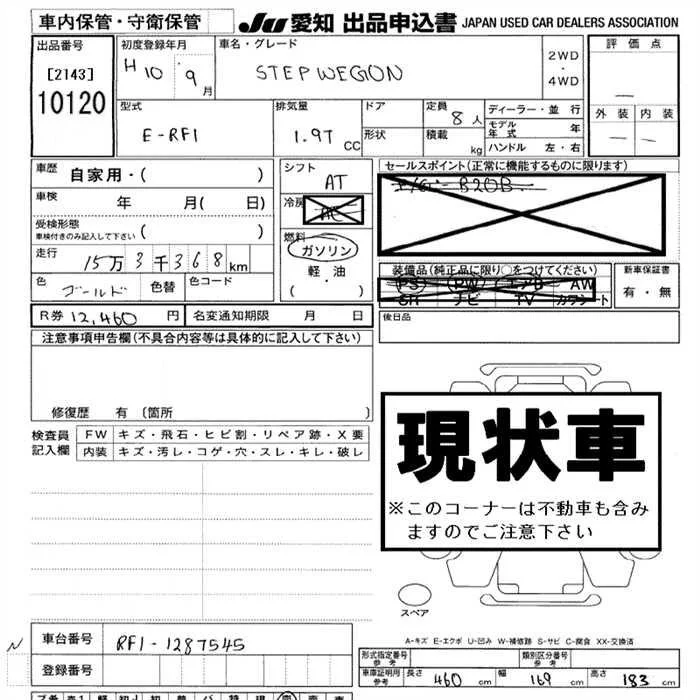 車内保管・守衛保管
JU 愛知 出品申込書 JAPAN USED CAR DEALERS ASSOCIATION
出品番号
[2143]
10120
初度登録年月
H10・9月
車名・グレード
STEPWEGON
2WD
・
4WD
評価点
—
外装 内装
— —
型式
E-RF1
排気量
1.9T CC
ドア
形状
定員
8人
積載 kg
ディーラー・並行
モデル年式 年
ハンドル 左・右
車歴
自家用・( )
車検 年 月( 日)
受検形態
車検付きのみ記入して下さい ( )
走行
15万3千368km
色
ゴールド
色替
色コード
シフト
AT
冷房
AC
燃料
ガソリン
軽・油
( ・ )
セールスポイント(正常に機能するものに限ります)
E/G:B20B
装備品(純正品に限り○をつけてください)
PS PW エアB AW
SR ナビ TV カワシート
新車保証書
有・無
R券 12,460円
名変通知期限 月 日
後日品
注意事項申告欄(不具合内容等は具体的に記入して下さい)
修復歴 有 〔箇所 〕
検査員
記入欄
FW キズ・飛石・ヒビ割・リペア跡・X要
内装 キズ・汚レ・コゲ・穴・スレ・キレ・破レ
現状車
※このコーナーは不動車も含み
ますのでご注意下さい
スペア
A-キズ E-エクボ U-凹み W-補修跡 S-サビ C-腐食 XX-交換済
N
車台番号
RF1-1287545
登録番号
形式指定番号
参考
類別区分番号
参考
車庫証明用
参考
長さ 460 cm 幅 169 cm 高さ 183 cm